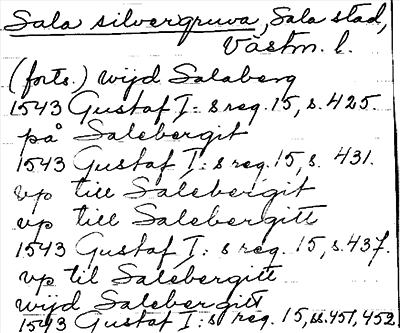 Sala silvergruva, Sala stad,
Västm. l.
(forts.) wijd Salaberg
1543 Gustaf I:s reg. 15, s. 425.
på Salebergit
1543 Gustaf I:s reg. 15, s. 431.
vp till Salebergit
vp till Salebergitt
1543 Gustaf I:s reg. 15, s. 437.
vp til Salebergitt
wijd Salebergitt
1543 Gustaf I:s reg. 15, ss. 451, 452